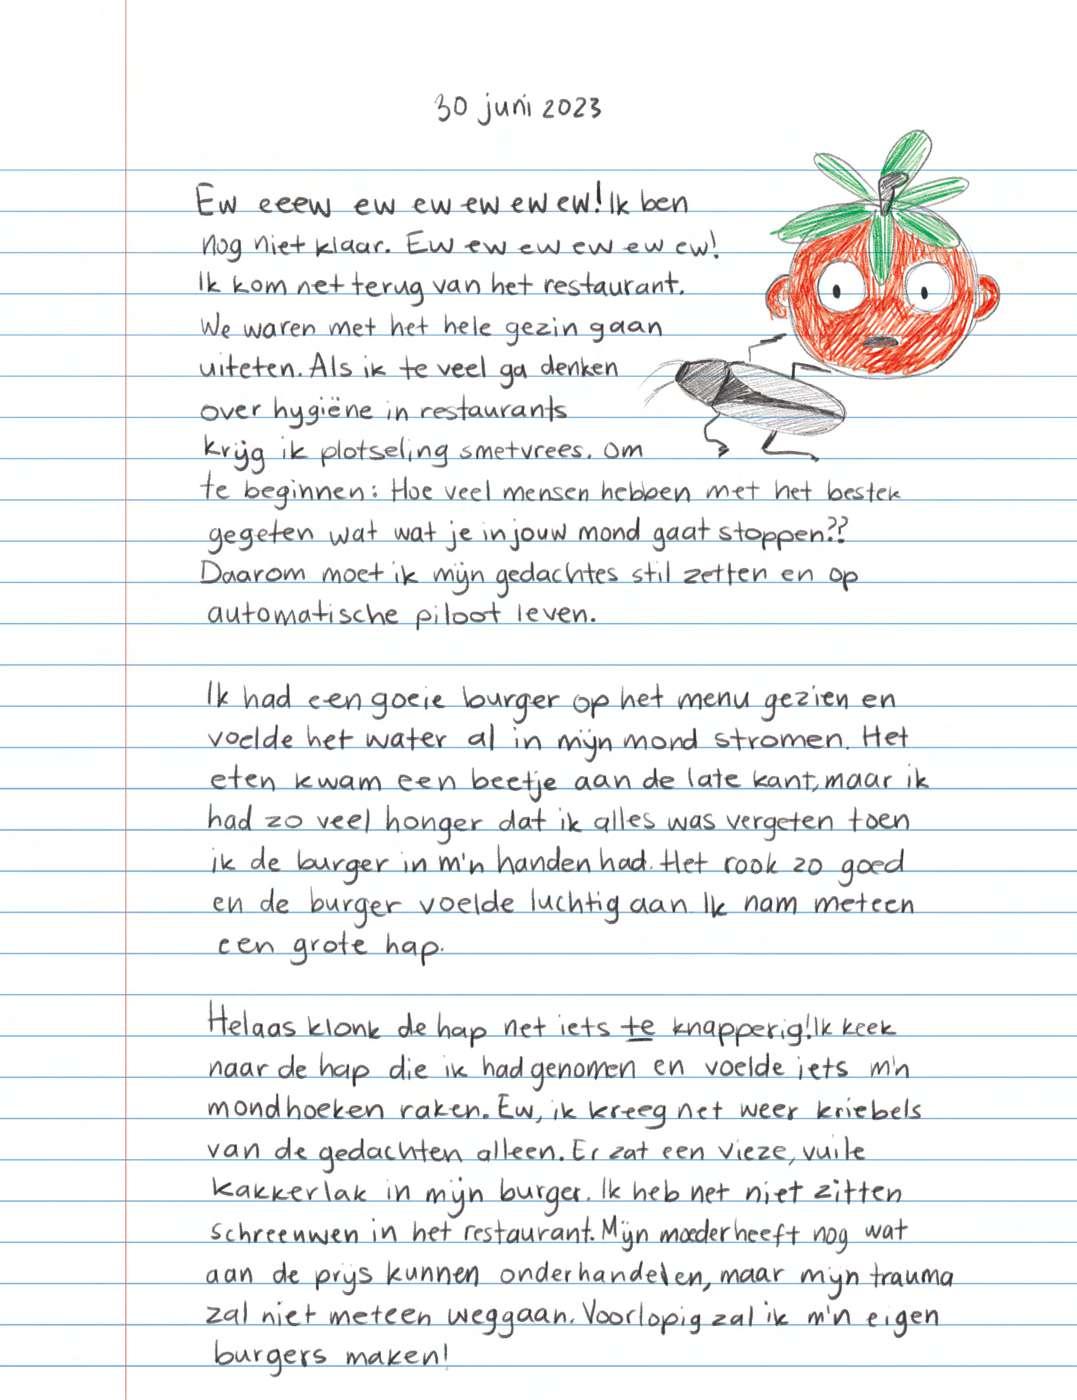 30 juni 2023
Ew eeew ew ew ew ew ew! Ik ben
nog niet klaar. Ew ew ew ew ew ew!
Ik kom net terug van het restaurant.
We waren met het hele gezin gaan
uiteten. Als ik te veel ga denken
over hygiëne in restaurants
krijg ik plotseling smetvrees. Om
te beginnen: Hoe veel mensen hebben met het bestek
gegeten wat wat je in jouw mond gaat stoppen??
Daarom moet ik mijn gedachtes stil zetten en op
automatische piloot leven.
Ik had een goeie burger op het menu gezien en
voelde het water al in mijn mond stromen. Het
eten kwam een beetje aan de late kant, maar ik
had zo veel honger dat ik alles was vergeten toen
ik de burger in m'n handen had. Het rook zo goed
en de burger voelde luchtig aan. Ik nam meteen
een grote hap.
Helaas klonk de hap net iets te knapperig! Ik keek
naar de hap die ik had genomen en voelde iets m'n
mondhoeken raken. Ew, ik kreeg net weer kriebels
van de gedachten alleen. Er zat een vieze, vuile
kakkerlak in mijn burger. Ik heb net niet zitten
schreenwen in het restaurant. Mijn moeder heeft nog wat
aan de prijs kunnen onderhandelen, maar mijn trauma
zal niet meteen weggaan. Voorlopig zal ik m'n eigen
burgers maken!